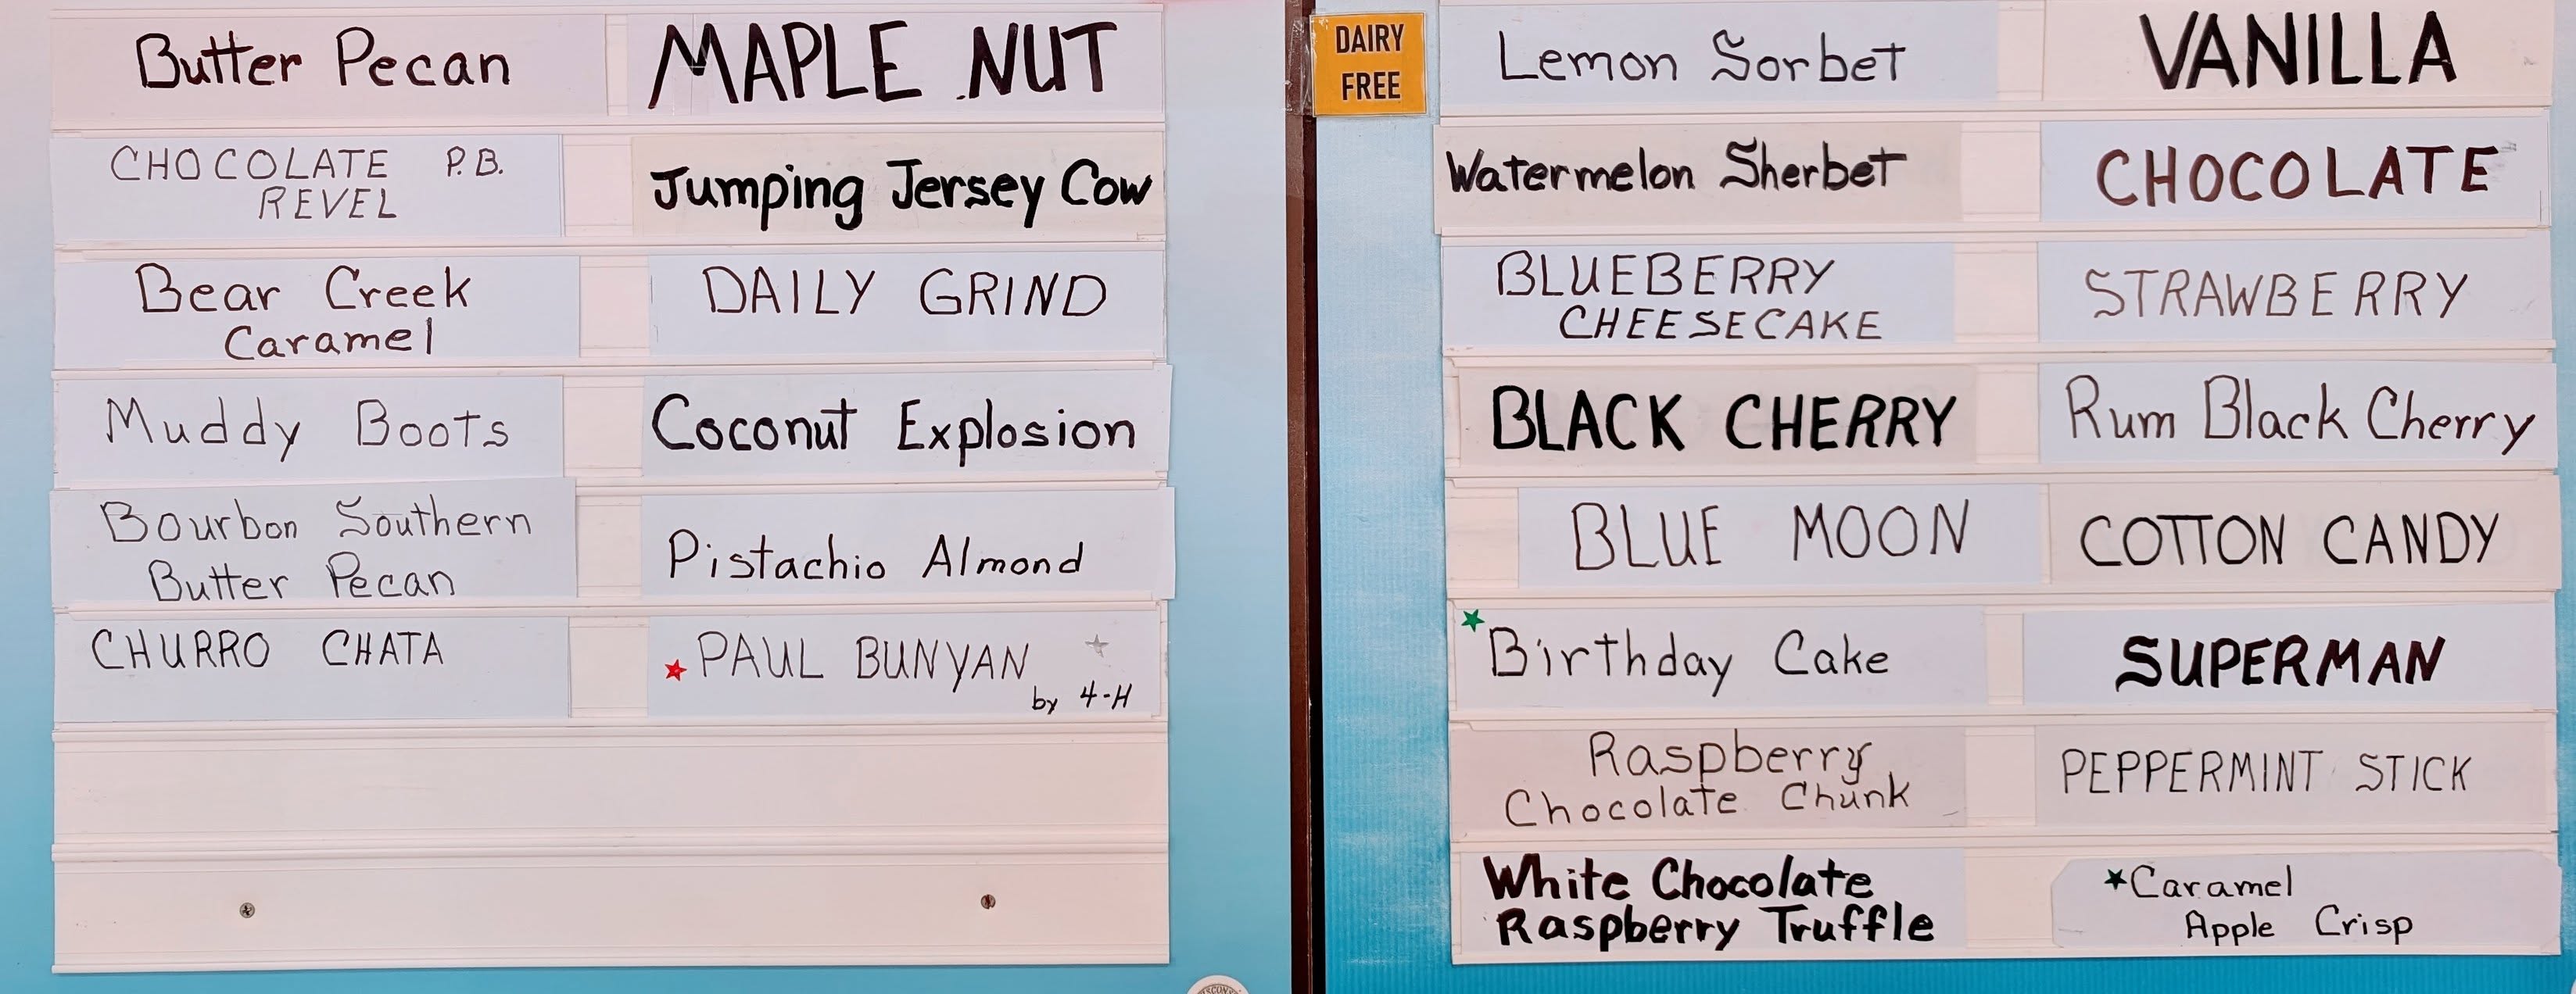 Butter Pecan
MAPLE NUT
CHOCOLATE P.B.
REVEL
Jumping Jersey Cow
Bear Creek
Caramel
DAILY GRIND
Muddy Boots
Coconut Explosion
Bourbon Southern
Butter Pecan
Pistachio Almond
CHURRO CHATA
PAUL BUNYAN
by 4-H
DAIRY
FREE
Lemon Sorbet
VANILLA
Watermelon Sherbet
CHOCOLATE
BLUEBERRY
CHEESECAKE
STRAWBERRY
BLACK CHERRY
Rum Black Cherry
BLUE MOON
COTTON CANDY
Birthday Cake
SUPERMAN
Raspberry
Chocolate Chunk
PEPPERMINT STICK
White Chocolate
Raspberry Truffle
Caramel
Apple Crisp